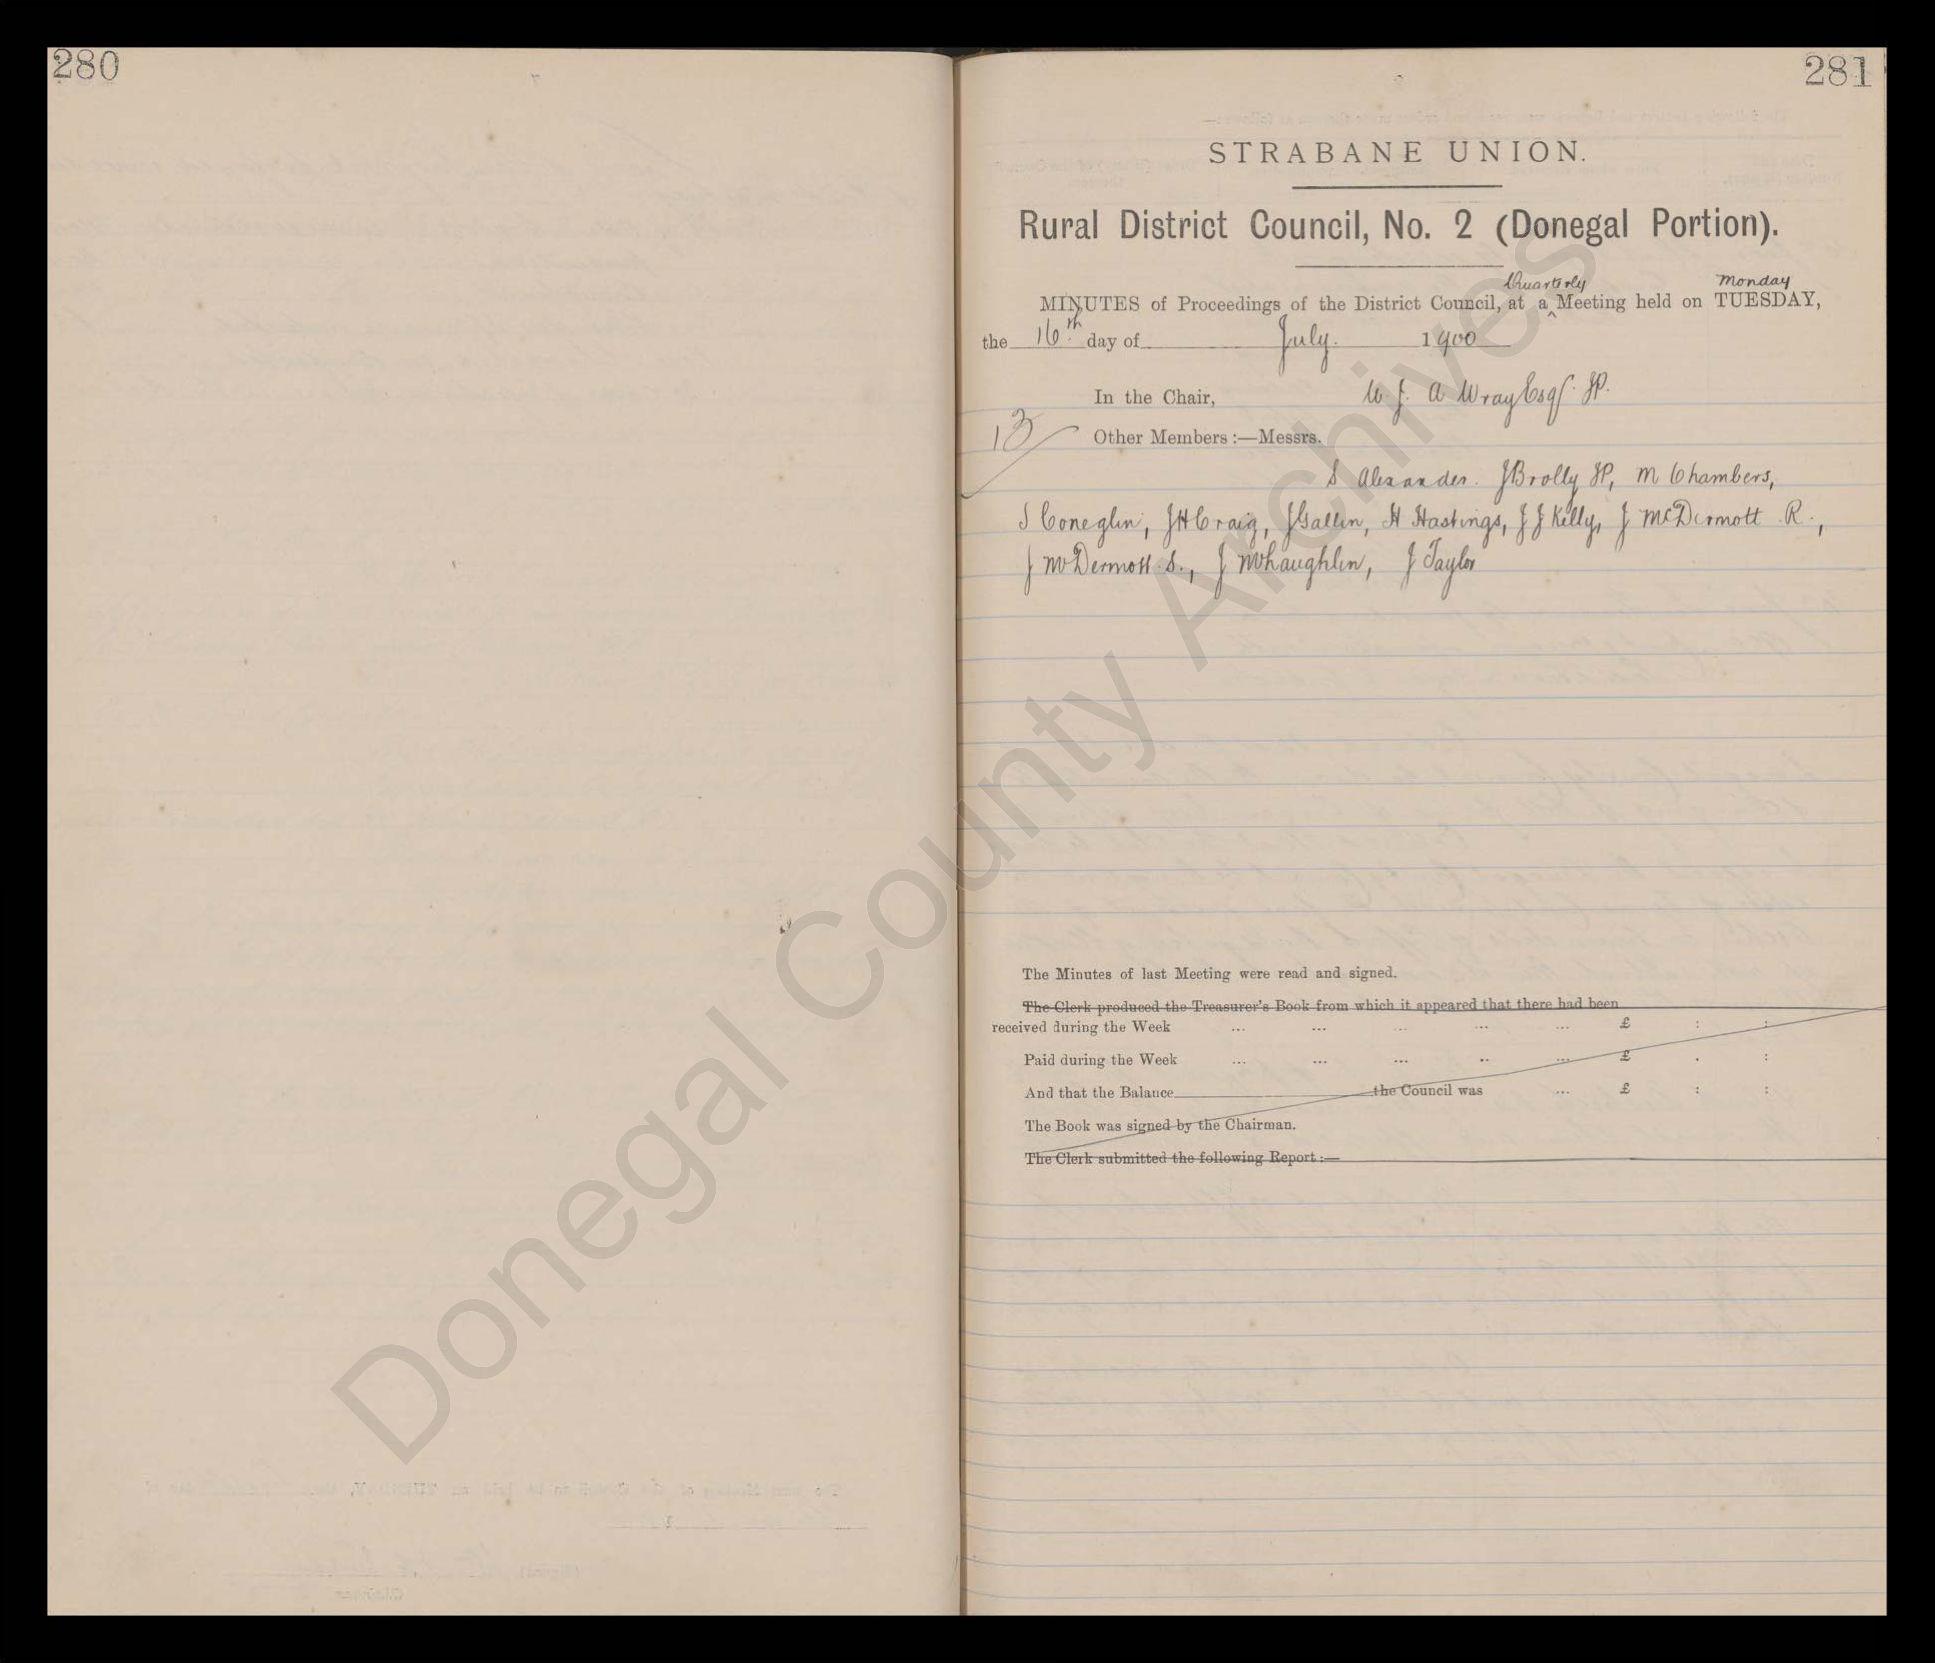 280
281
STRABANE UNION.
Rural District Council, No. 2 (Donegal Portion).
Quarterly Monday
MINUTES of Proceedings of the District Council, at a ‸ Meeting held on TUESDAY,
the 16th day of July. 1900
In the Chair, W. J. A Wray Esqr. JP.
13 Other Members :—Messrs.
S Alexander. J Brolly JP, M Chambers,
S Coneglin, JH Craig, J Gallen, H Hastings, J J Kelly, J McDermott R.,
J McDermott S., J McLaughlin, J Taylor
The Minutes of last Meeting were read and signed.
The Clerk produced the Treasurer's Book from which it appeared that there had been
received during the Week ... ... ... ... ... £ : :
Paid during the Week ... ... ... .. ... £ . :
And that the Balance the Council was ... £ : :
The Book was signed by the Chairman.
The Clerk submitted the following Report :—
Donegal County Archives